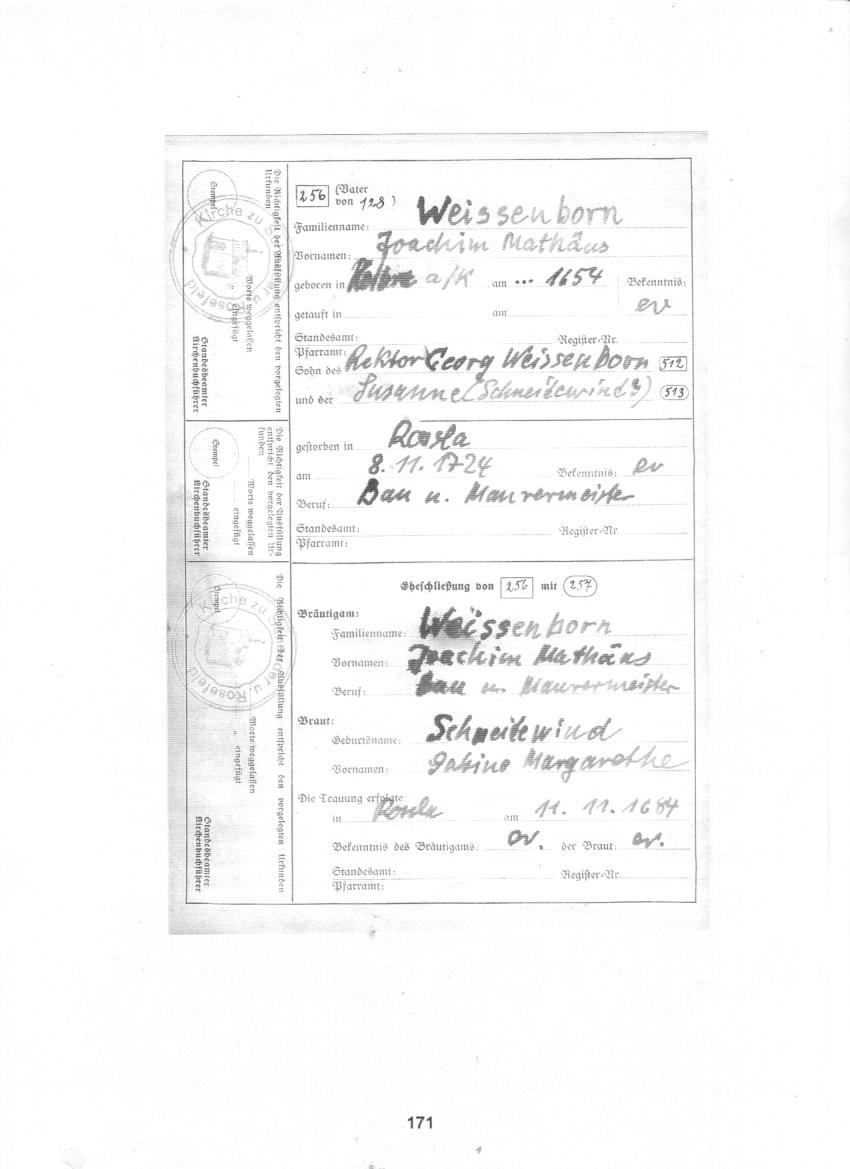 256 (Vater von 128)
Familienname: Weissenborn
Vornamen: Joachim Mathäus
geboren in a/K am ... 1654 Bekenntnis: ev
getauft in am
Standesamt: Register-Nr.
Pfarramt:
Sohn des Rektor Georg Weissenborn 512
und der Susanne (Schneidewind?) 513
gestorben in Rosla
am 8. 11. 1724 Bekenntnis: ev
Beruf: Bau u. Maurermeister
Standesamt: Register-Nr
Pfarramt:
Eheschließung von 256 mit 257
Bräutigam:
Familienname: Weissenborn
Vornamen: Joachim Mathäus
Beruf: Bau u. Maurermeister
Braut:
Geburtsname: Schneidewind
Vornamen: Sabine Margarethe
Die Trauung erfolgte
in Rosla am 11. 11. 1684
Bekenntnis des Bräutigams: ev. der Braut: ev.
Standesamt: Register-Nr.
Pfarramt:
Die Richtigkeit der Ausfüllung entspricht den vorgelegten Urkunden
Worte weggelassen
" eingefügt
Stempel
Standesbeamter
Kirchenbuchführer
Kirche zu u. Rosefeld
Die Richtigkeit der Ausfüllung entspricht den vorgelegten Urkunden
Worte weggelassen
eingefügt
Stempel
Standesbeamter
Kirchenbuchführer
Die Richtigkeit der Ausfüllung entspricht den vorgelegten Urkunden
Worte weggelassen
" eingefügt
Stempel
Standesbeamter
Kirchenbuchführer
Kirche zu u. Rosefeld
171